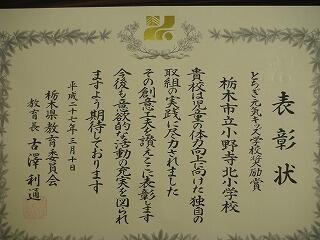 表彰状
とちぎ元気キッズ学校奨励賞
栃木市立小野寺北小学校
貴校は児童の体力向上に向けた独自の
取組の実践に尽力されました
その創意工夫を讃えここに表彰します
今後も意欲的な活動の充実を図られ
ますよう期待しております
平成二十七年三月十日
栃木県教育委員会
教育長 古澤利通